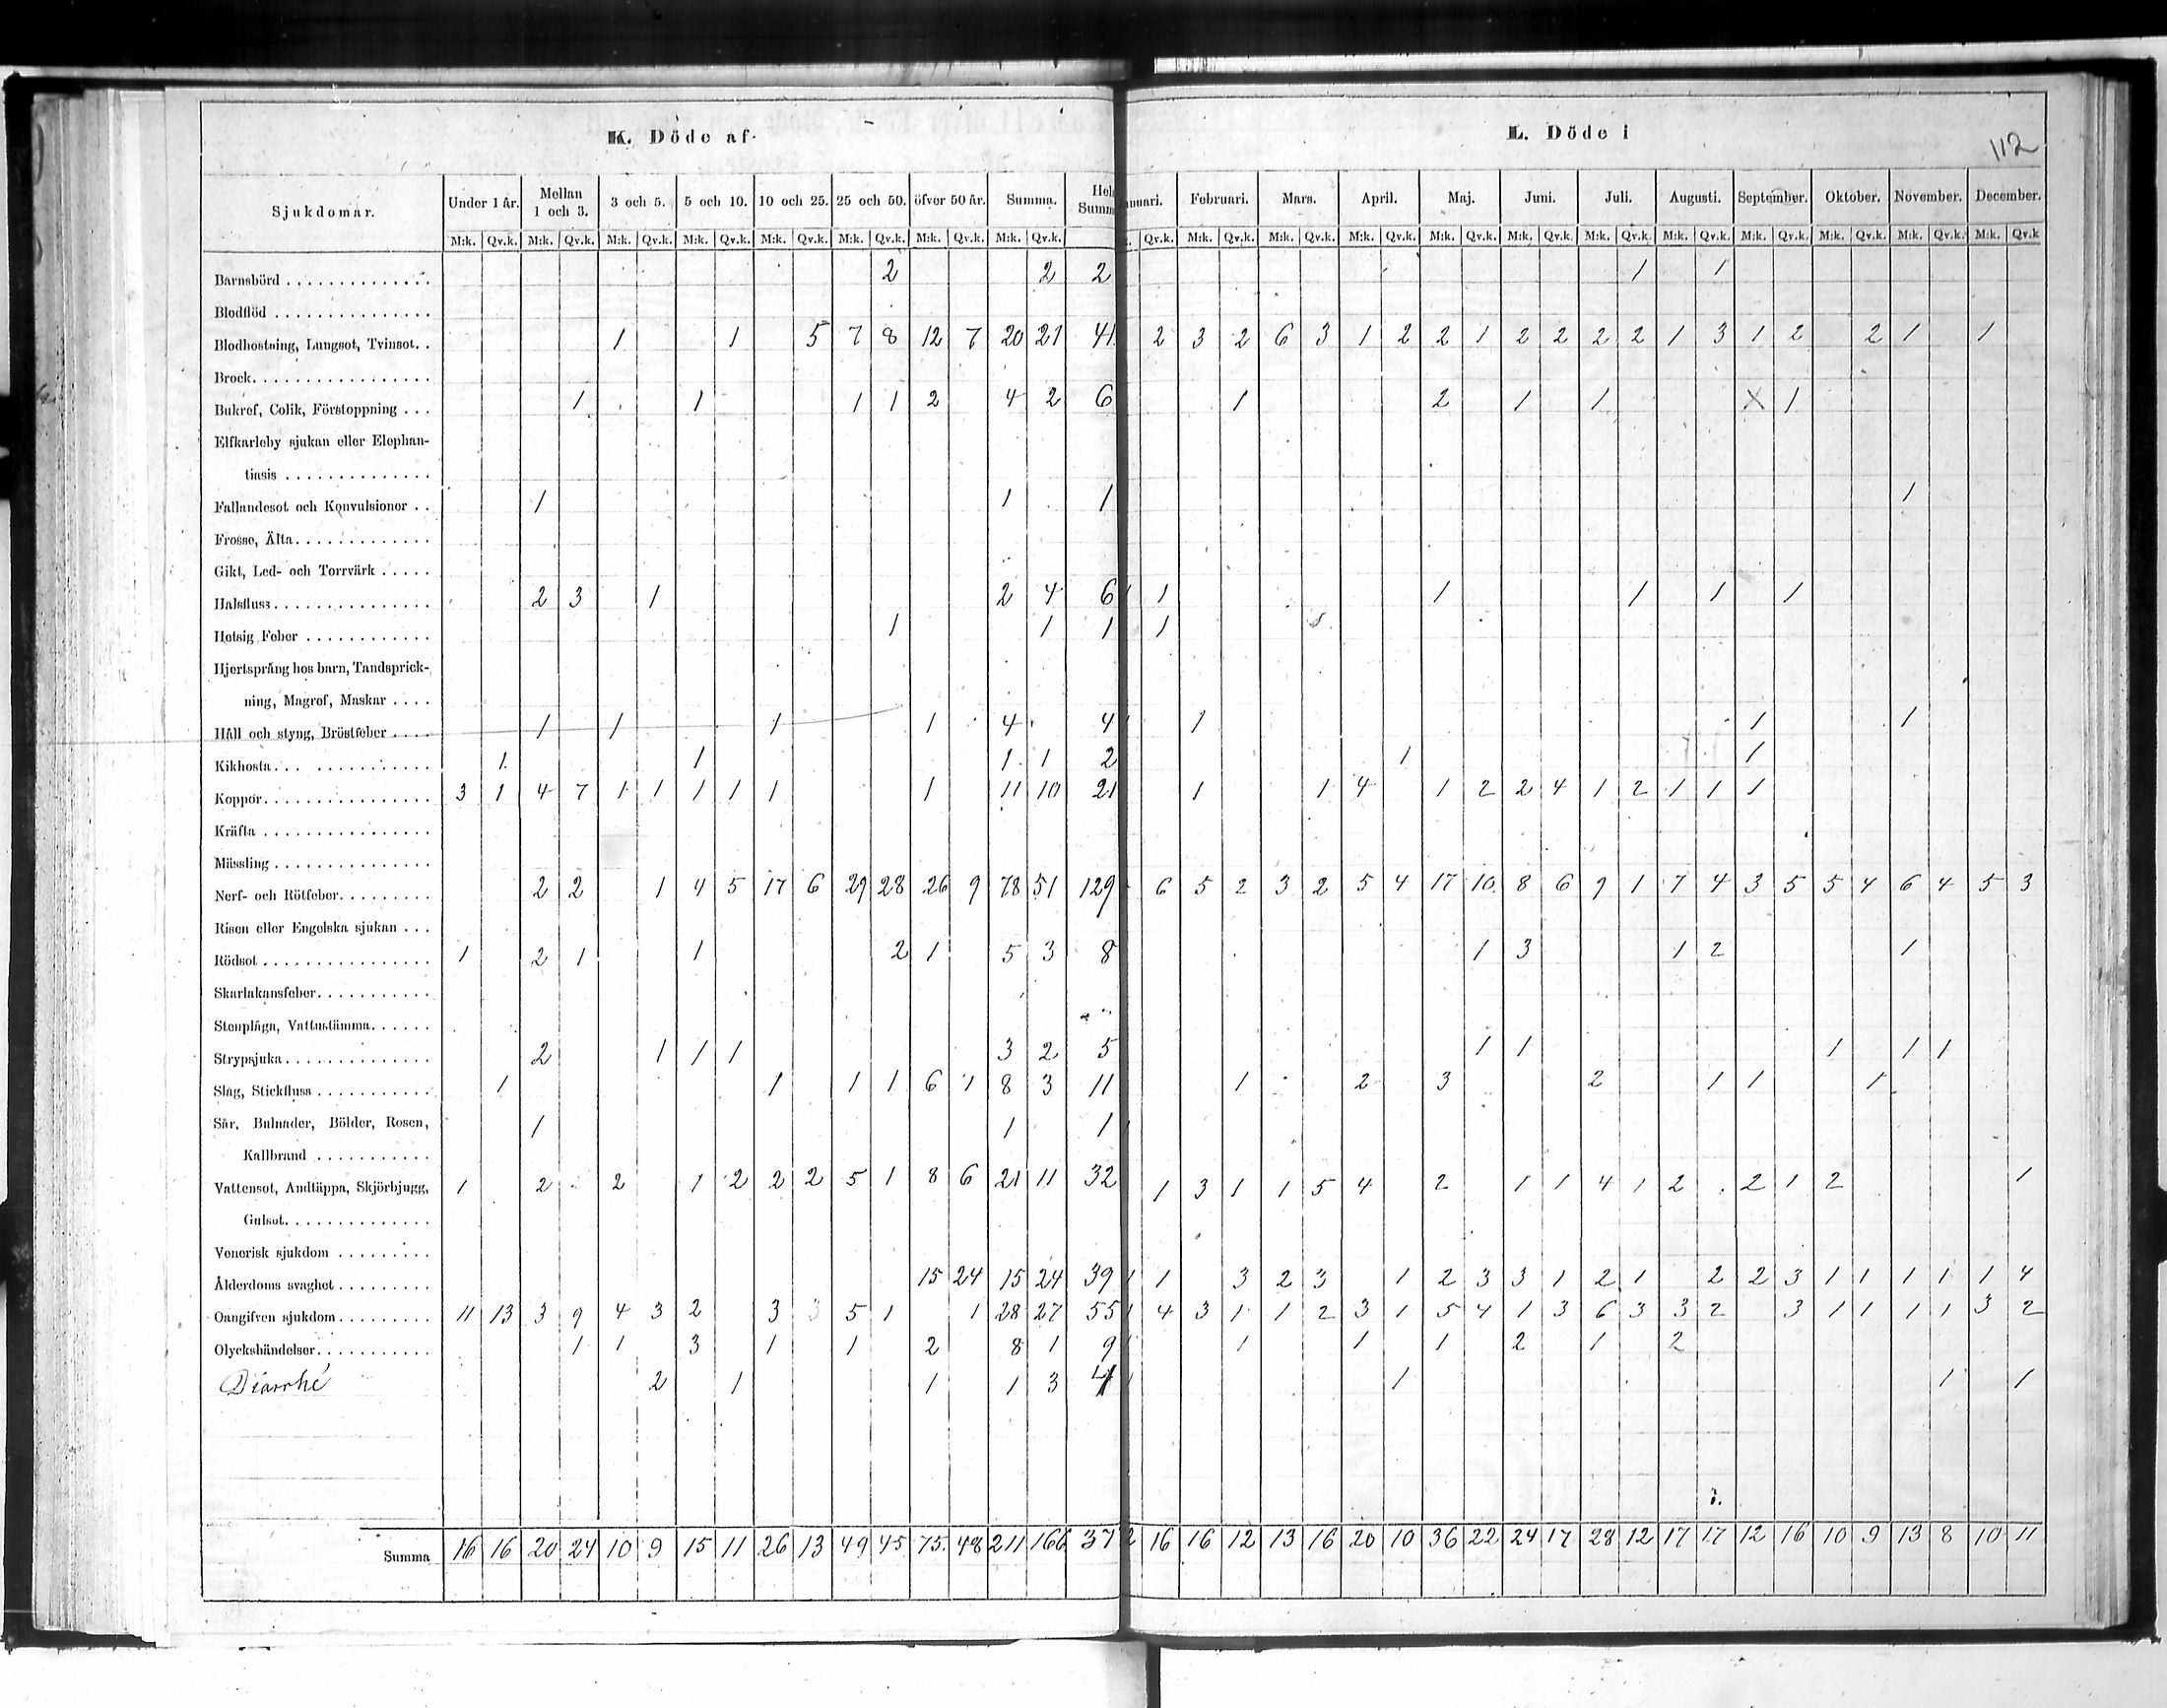 K. Döde af
L. Döde i
112
Sjukdomar. Under 1 år. Mellan 1 och 3. 3 och 5. 5 och 10. 10 och 25. 25 och 50. öfver 50 år. Summa. Januari. Februari. Mars. April. Maj. Juni. Juli. Augusti. September. Oktober. November. December.
M:k. Qv.k. M:k. Qv.k. M:k. Qv.k. M:k. Qv.k. M:k. Qv.k. M:k. Qv.k. M:k. Qv.k. M:k. Qv.k. Qv.k. M:k. Qv.k. M:k. Qv.k. M:k. Qv.k. M:k. Qv.k. M:k. Qv.k. M:k. Qv.k. M:k. Qv.k. M:k. Qv.k. M:k. Qv.k. M:k. Qv.k. M:k. Qv.k
Barnsbörd 2 2 2 1 1
Blodflöd
Blodhostning, Lungsot, Tvinsot. 1 1 5 7 8 12 7 20 21 41 2 3 2 6 3 1 2 2 1 2 2 2 2 1 3 1 2 2 1 1
Brock
Bukref, Colik, Förstoppning 1 1 1 1 2 4 2 6 1 2 1 1 X 1
Elfkarleby sjukan eller Elephan-
tiasis
Fallandesot och Konvulsioner 1 1 1 1
Frossa, Älta
Gikt, Led- och Torrvärk
Halsfluss 2 3 1 2 4 6 1 1 1 1 1 1
Hetsig Feber 1 1 1 1
Hjertsprång hos barn, Tandsprick-
ning, Magref, Maskar
Håll och styng, Bröstfeber 1 1 1 1 4 4 1 1 1
Kikhosta 1 1 1 1 2 1 1
Koppor 3 1 4 7 1 1 1 1 1 1 11 10 21 1 1 4 1 2 2 4 1 2 1 1 1
Kräfta
Mässling
Nerf- och Rötfeber 2 2 1 4 5 17 6 29 28 26 9 78 51 129 6 5 2 3 2 5 4 17 10 8 6 9 1 7 4 3 5 5 4 6 4 5 3
Risen eller Engelska sjukan
Rödsot 1 2 1 1 2 1 5 3 8 1 3 1 2 1
Skarlakansfeber
Stenplåga, Vattustämma
Strypsjuka 2 1 1 1 3 2 5 1 1 1 1 1
Slag, Stickfluss 1 1 1 1 6 1 8 3 11 1 2 3 2 1 1 1
Sår, Bulnader, Bölder, Rosen, 1 1 1
Kallbrand
Vattensot, Andtäppa, Skjörbjugg, 1 2 2 1 2 2 2 5 1 8 6 21 11 32 1 3 1 1 5 4 2 1 1 4 1 2 2 1 2 1
Gulsot
Venerisk sjukdom
Ålderdoms svaghet 15 24 15 24 39 1 1 3 2 3 1 2 3 3 1 2 1 2 2 3 1 1 1 1 1 4
Oangifven sjukdom 11 13 3 9 4 3 2 3 3 5 1 1 28 27 55 1 4 3 1 1 2 3 1 5 4 1 3 6 3 3 2 3 1 1 1 1 3 2
Olyckshändelser 1 1 3 1 1 2 8 1 9 1 1 1 2 1 2
Diarrhé 2 1 1 1 3 4 1 1 1 1
Summa 16 16 20 24 10 9 15 11 26 13 49 45 75 48 211 166 37 2 16 16 12 13 16 20 10 36 22 24 17 28 12 17 17 12 16 10 9 13 8 10 11